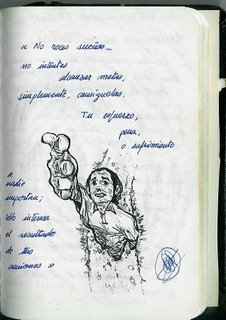 « No veas sueños...
no intentes
alcanzar metas,
simplemente, consíguelas.
Tu esfuerzo,
pena,
o sufrimiento
a
nadie
importan;
sólo interesa
el resultado
de tus
acciones »